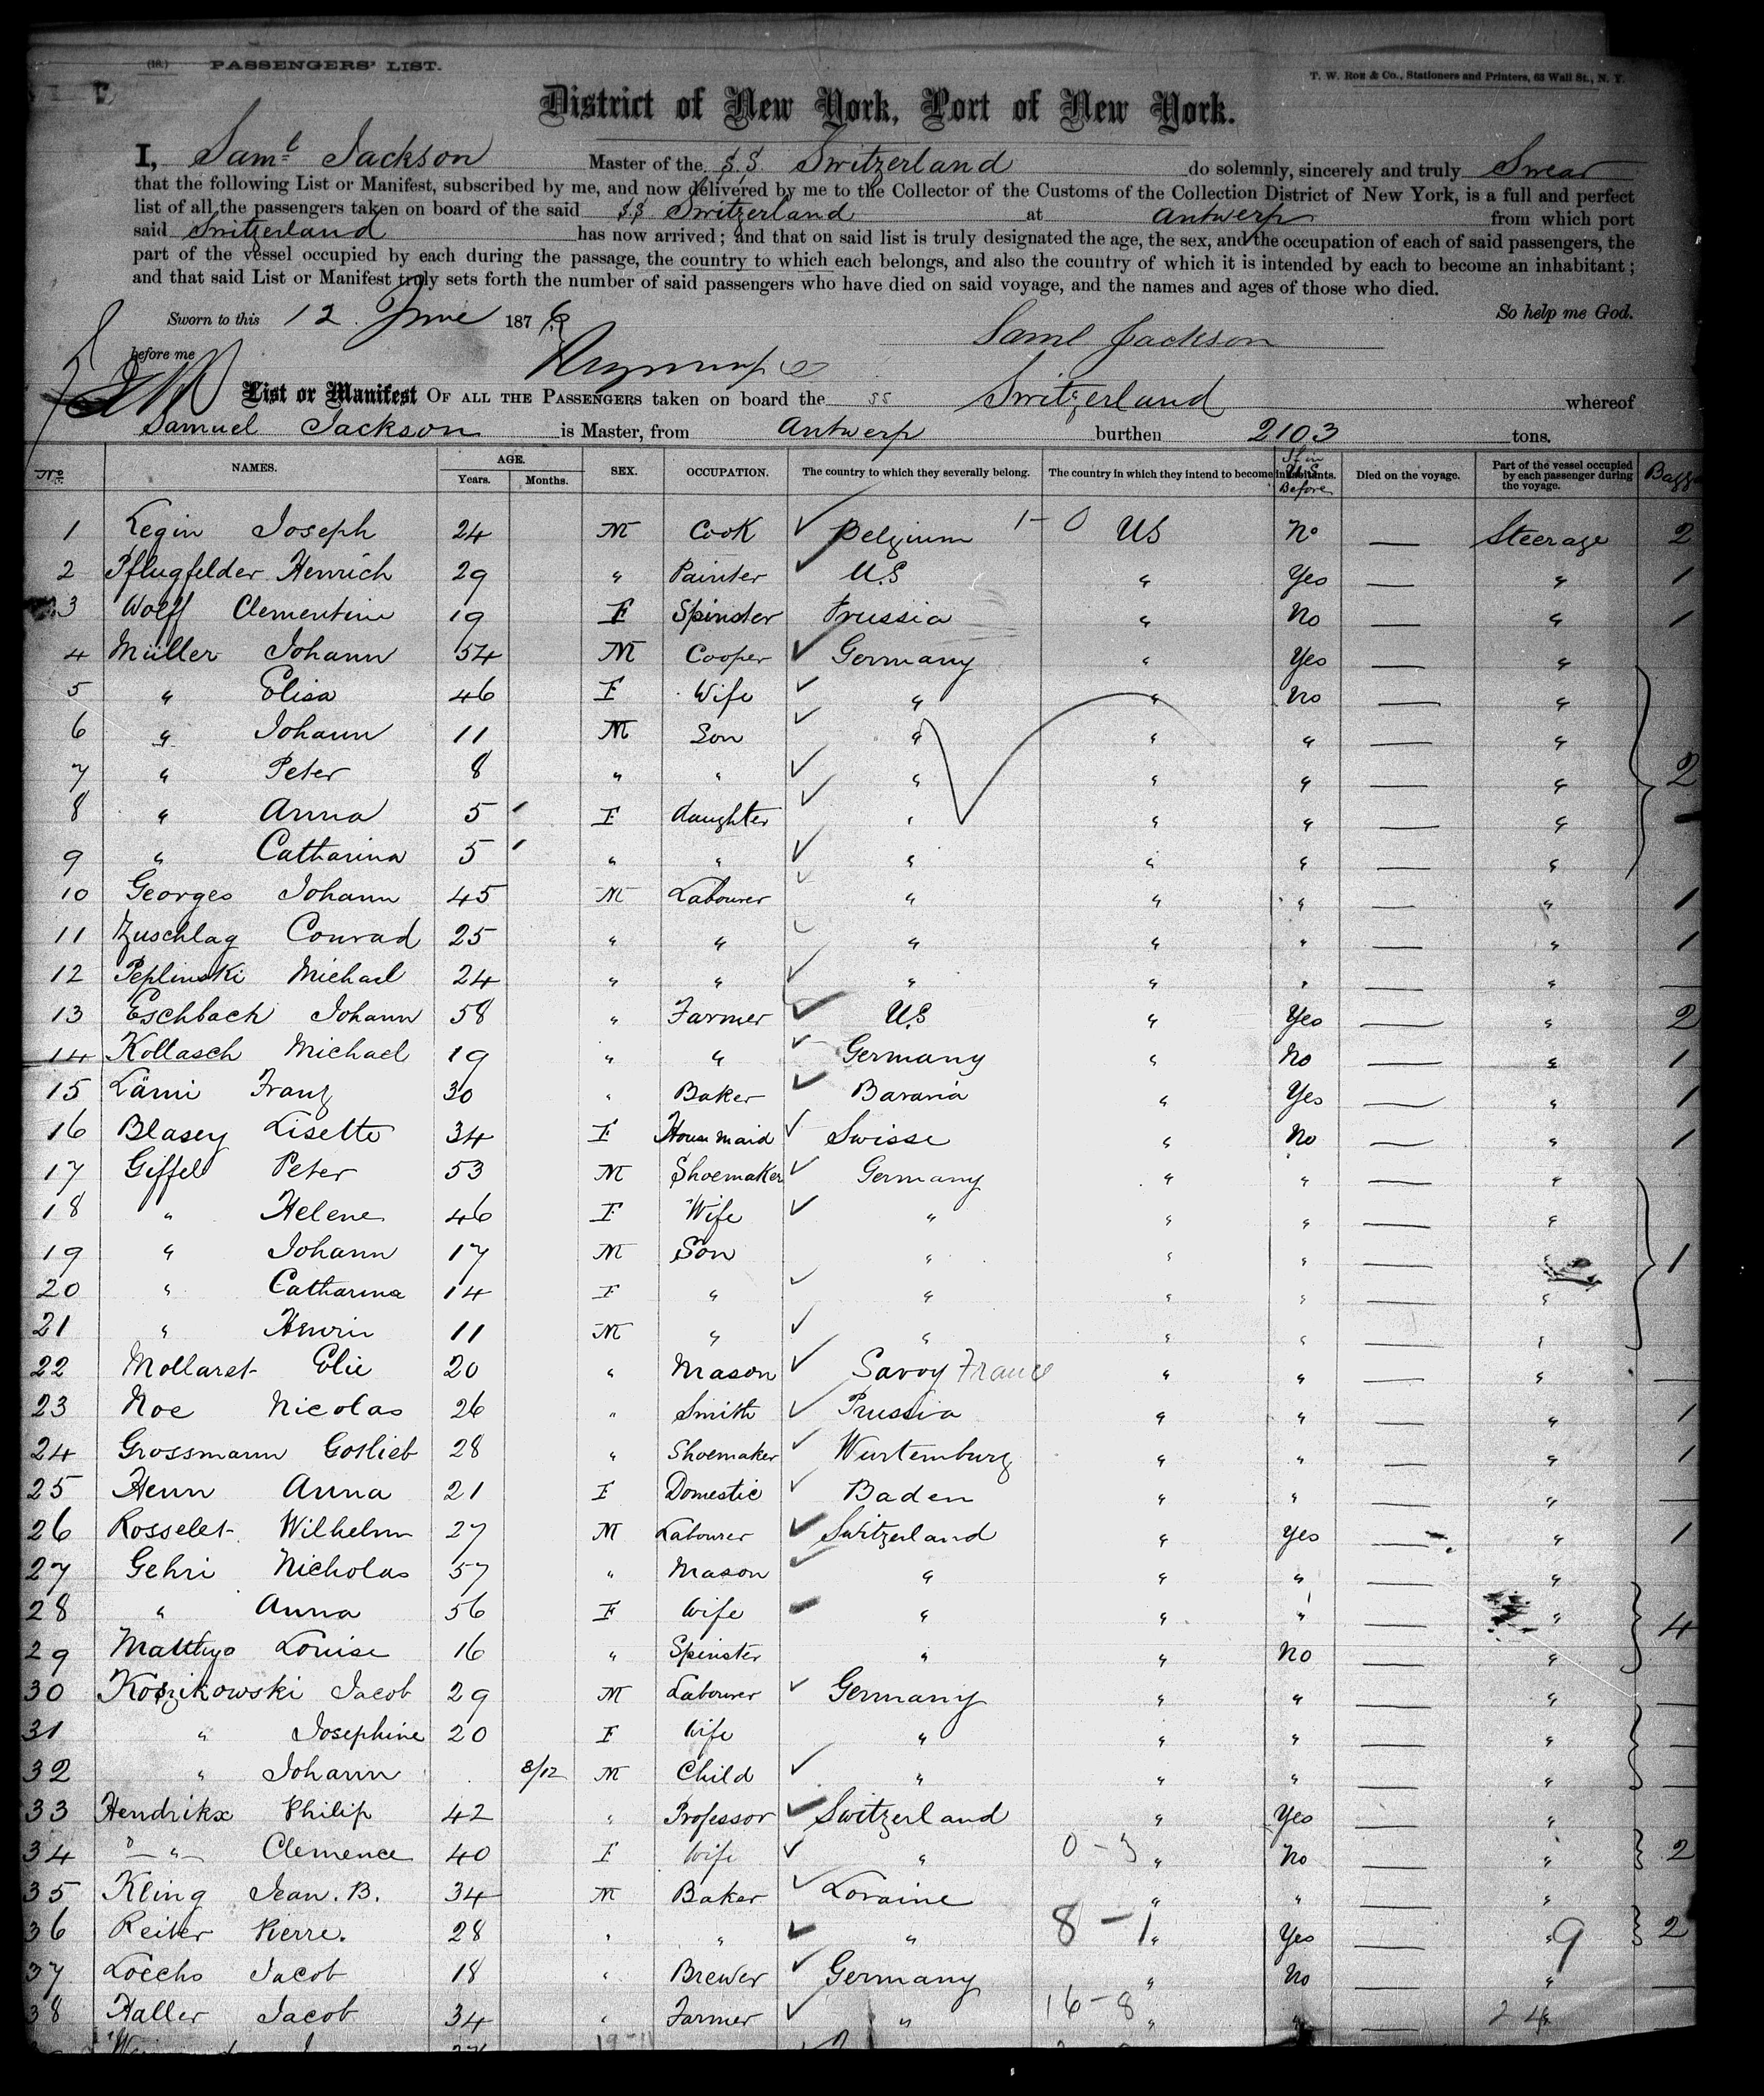 (18.) PASSENGERS' LIST.
T. W. Roe & Co., Stationers and Printers, 63 Wall St., N. Y.
District of New York, Port of New York.
I, Saml Jackson Master of the S.S. Switzerland do solemnly, sincerely and truly Swear
that the following List or Manifest, subscribed by me, and now delivered by me to the Collector of the Customs of the Collection District of New York, is a full and perfect
list of all the passengers taken on board of the said SS Switzerland at Antwerp from which port
said Switzerland has now arrived; and that on said list is truly designated the age, the sex, and the occupation of each of said passengers, the
part of the vessel occupied by each during the passage, the country to which each belongs, and also the country of which it is intended by each to become an inhabitant;
and that said List or Manifest truly sets forth the number of said passengers who have died on said voyage, and the names and ages of those who died.
Sworn to this 12 June 1876 So help me God.
before me Saml Jackson
List or Manifest OF ALL THE PASSENGERS taken on board the SS Switzerland whereof
Samuel Jackson is Master, from Antwerp burthen 2103 tons.
No NAMES. AGE. Years. Months. SEX. OCCUPATION. The country to which they severally belong. The country in which they intend to become inhabitants. If in U.S. Before Died on the voyage. Part of the vessel occupied by each passenger during the voyage. Bagg
1 Legin Joseph 24 M Cook Belgium 1-0 US No — Steerage 2
2 Pflugfelder Henrich 29 " Painter U.S " Yes — " 1
3 Wolff Clementine 19 F Spinster Prussia " No — " 1
4 Müller Johann 54 M Cooper Germany " Yes — "
5 " Elisa 46 F Wife " " No — "
6 " Johann 11 M Son " " " — "
7 " Peter 8 " " " " " — " 2
8 " Anna 5 F daughter " " " — "
9 " Catharina 5 " " " " " — "
10 Georges Johann 45 M Labourer " " " — " 1
11 Zuschlag Conrad 25 " " " " " — " 1
12 Peplinski Michael 24 " " " " " — " —
13 Eschbach Johann 58 " Farmer U.S " Yes — " 2
14 Kollasch Michael 19 " " Germany " No — " 1
15 Lämi Franz 30 " Baker Bavaria " Yes — " 1
16 Blasey Lisette 34 F House maid Swisse " No — " 1
17 Giffel Peter 53 M Shoemaker Germany " " — "
18 " Helene 46 F Wife " " " — "
19 " Johann 17 M Son " " " — " 1
20 " Catharina 14 F " " " " — "
21 " Henrin 11 M " " " " — "
22 Mollaret Elie 20 " Mason Savoy France " " — " —
23 Noe Nicolas 26 " Smith Prussia " " — " 1
24 Grossmann Gotlieb 28 " Shoemaker Wurtemburg " " — " 1
25 Henn Anna 21 F Domestic Baden " " — " —
26 Rosselet Wilhelm 27 M Labourer Switzerland " Yes — " 1
27 Gehri Nicholas 57 " Mason " " " — "
28 " Anna 56 F Wife " " " — " 4
29 Matthys Louise 16 " Spinster " " No — "
30 Koszikowski Jacob 29 M Labourer Germany " " — " —
31 " Josephine 20 F Wife " " " — " —
32 " Johann 8/12 M Child " " " — " —
33 Hendrikx Philip 42 " Professor Switzerland " Yes — "
34 " Clemence 40 F Wife " 0-3 " No — " 2
35 Kling Jean. B. 34 M Baker Loraine " " — "
36 Reiter Pierre. 28 " " " 8-1 " Yes — " 9 2
37 Loechs Jacob 18 " Brewer Germany " No — " —
38 Haller Jacob 34 " Farmer " 16-8 " " — " 24 —
19-11